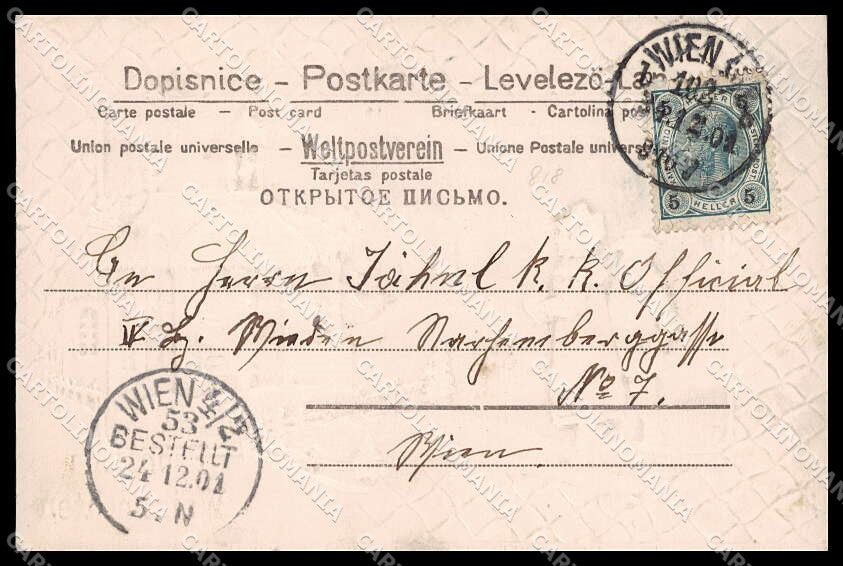 Dopisnice – Postkarte – Levelező-La
Carte postale – Post card Briefkaart - Cartolina pos
Union postale universelle – Weltpostverein – Unione Postale univers
Tarjetas postale
ОТКРЫТОЕ ПИСЬМО.
818
WIEN
5 HELLER 5
An Herrn Jähnl k. k. Official
IV Bz. Wieden Starhemberggasse
No 7.
Wien
WIEN 4/1
53
BESTELLT
24 12.01
5 N
CARTOLINOMANIA